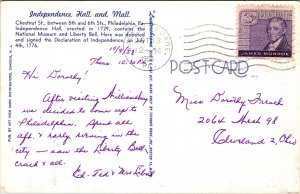 Independence Hall and Mall.
Chestnut St., between 5th and 6th Sts., Philadelphia, Pa.
Independence Hall, erected in 1729, contains the
National Museum and Liberty Bell. Here was debated
and signed the Declaration of Independence on July
4th, 1776.
10/9/58
Thurs 10:30 P.M.
Hi Dorothy!
After visiting Williamsburg
we decided to come up to
Philadelphia. Spent all
aft. & early evening in the
city - saw the Liberty Bell,
crack & all.
Ed - Ted & Mrs
POSTCARD
JAMES MONROE
Miss Dorothy French
2064 West 98
Cleveland 2, Ohio